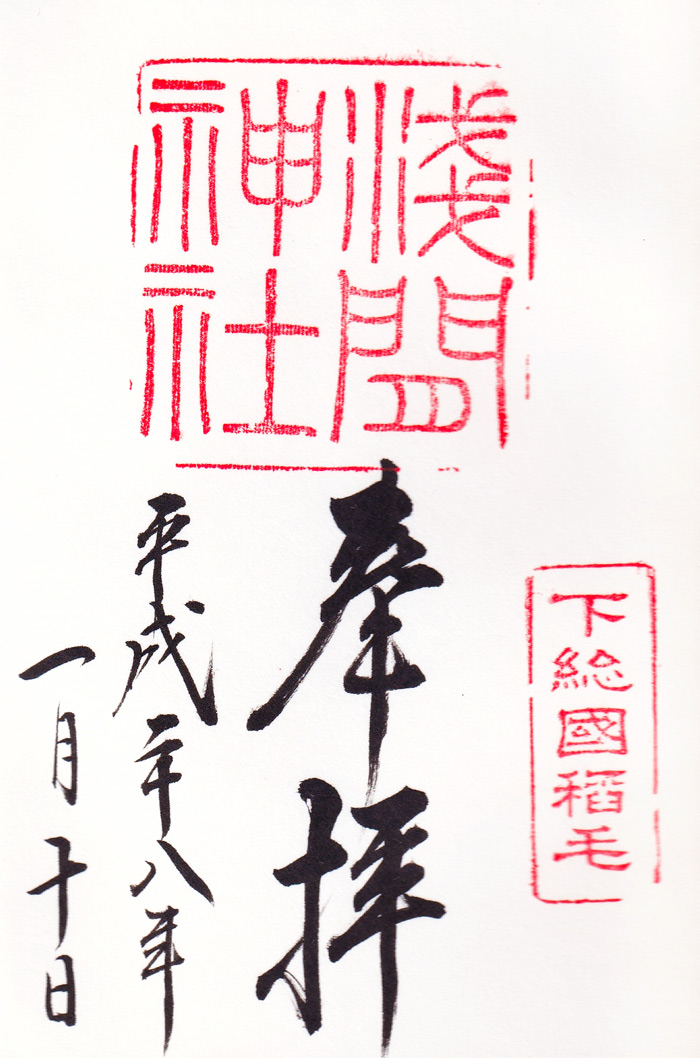 下総國稻毛
淺間
神社
奉拝
平成二十八年
一月十日